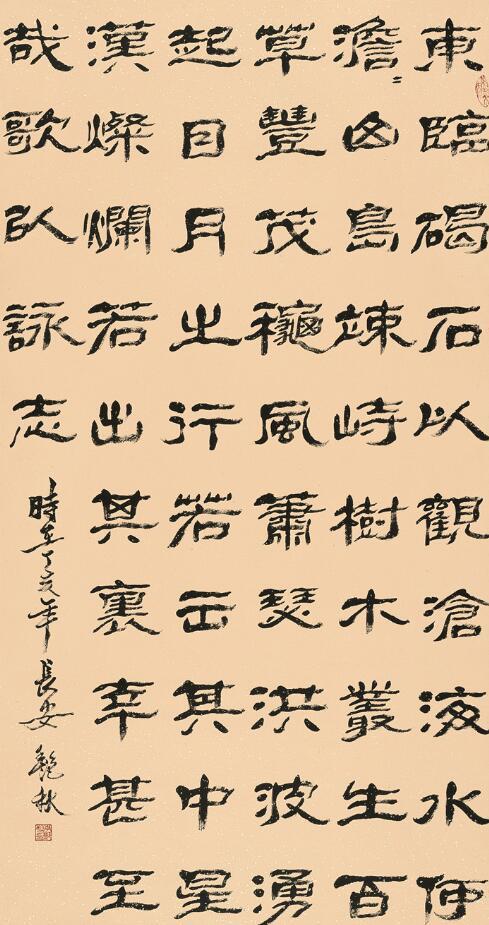 東臨碣石以觀滄海水何
澹〻山島竦峙樹木叢生百
草豐茂龝風蕭瑟洪波湧
起日月之行若出其中星
漢燦爛若出其裏幸甚至
哉歌以詠志
時在丁亥年長安秋